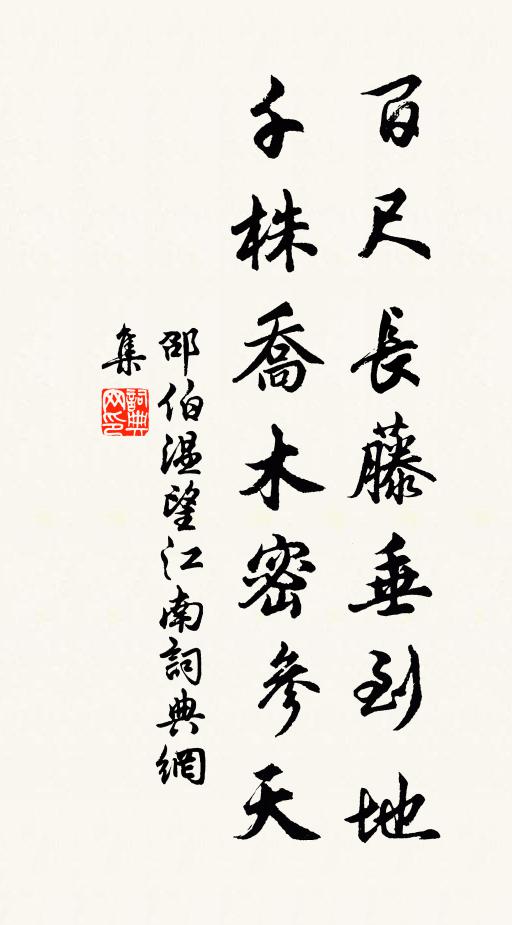 百尺長藤垂到地
千株喬木密參天
邵伯温望江南詞典網
集
詞典
网印